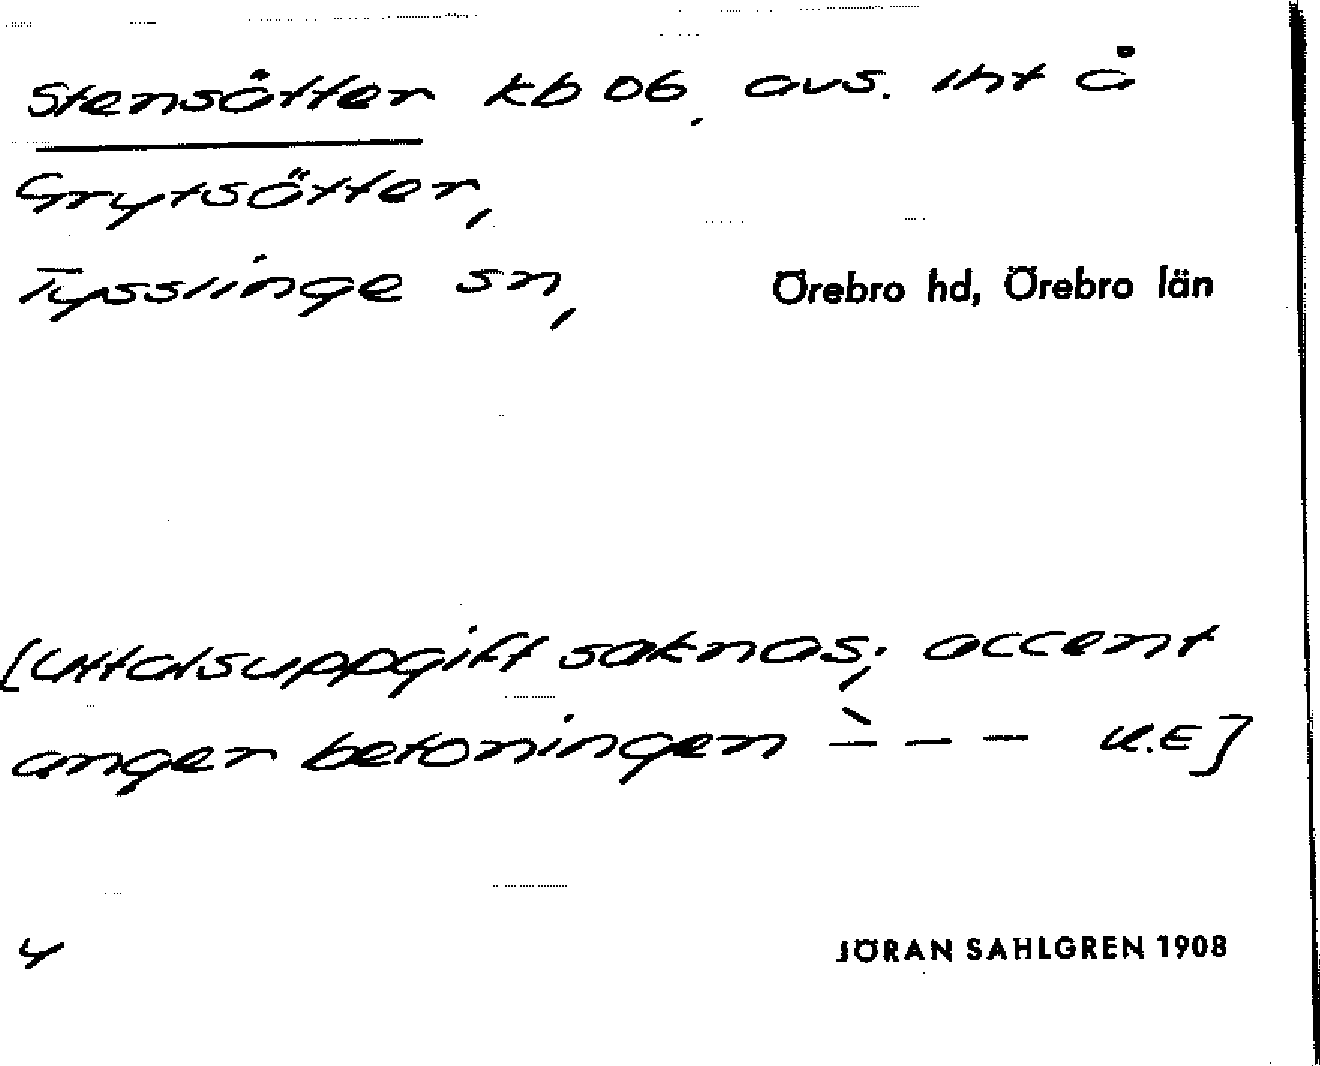 Stensåtter kb 06, avs. int å
Grytsötter,
Tysslinge sn, Örebro hd, Örebro län
[Uttalsuppgift saknas; accent
anger betoningen ̀– – – K.E]
4
JÖRAN SAHLGREN 1908